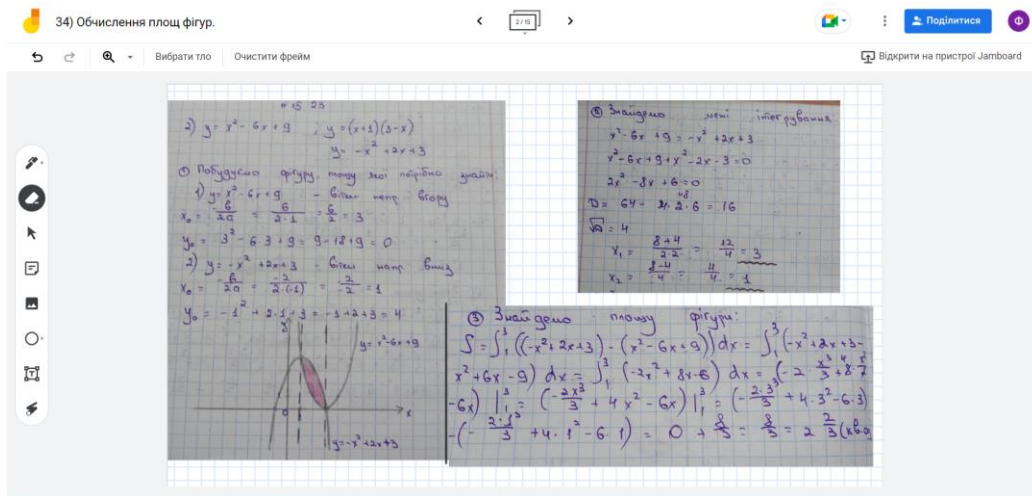 34) Обчислення площ фігур.
2 / 15
Поділитися
Ф
Вибрати тло
Очистити фрейм
Відкрити на пристрої Jamboard
2) y = x² - 6x + 9 ; y = (x+1)(3-x)
y = -x² + 2x + 3
① Побудуємо фігуру, площу якої потрібно знайти:
1) y = x² - 6x + 9 - вітки напр вгору
x₀ = -b/2a = 6/2·1 = 6/2 = 3
y₀ = 3² - 6·3 + 9 = 9 - 18 + 9 = 0
2) y = -x² + 2x + 3 - вітки напр вниз
x₀ = -b/2a = -2/2·(-1) = -2/-2 = 1
y₀ = -1² + 2·1 + 3 = -1 + 2 + 3 = 4
y
y = x² - 6x + 9
0
x
y = -x² + 2x + 3
② Знайдемо межі інтегрування
x² - 6x + 9 = -x² + 2x + 3
x² - 6x + 9 + x² - 2x - 3 = 0
2x² - 8x + 6 = 0
D = 64 - 4·2·6 = 16
√D = 4
x₁ = 8+4/2·2 = 12/4 = 3
x₂ = 8-4/4 = 4/4 = 1
③ Знайдемо площу фігури:
S = ∫₁³ ((-x² + 2x + 3) - (x² - 6x + 9)) dx = ∫₁³ (-x² + 2x + 3 -
x² + 6x - 9) dx = ∫₁³ (-2x² + 8x - 6) dx = (-2·x³/3 + 8·x²/2
-6x) |₁³ = (-2x³/3 + 4x² - 6x) |₁³ = (-2·3³/3 + 4·3² - 6·3)
-(-2·1³/3 + 4·1² - 6·1) = 0 + 8/3 = 8/3 = 2 2/3 (кв.о